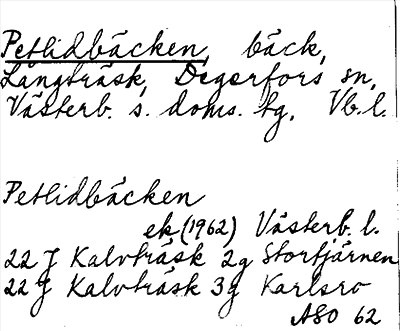 Petlidbäcken, bäck,
Långträsk, Degerfors sn,
Västerb. s. doms. tg, Vb. l.
Petlidbäcken
ek (1962) Västerb. l.
22 J Kalvträsk 2g Stortjärnen
22 J Kalvträsk 3g Karlsro
ASO 62